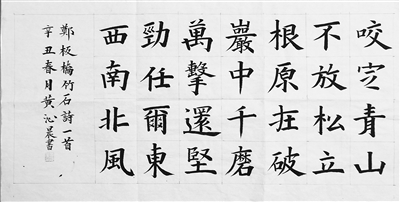 咬定青山
不放松立
根原在破
巖中千磨
萬擊還堅
勁任爾東
西南北風
鄭板橋竹石詩一首
辛丑春月黄沁晨書